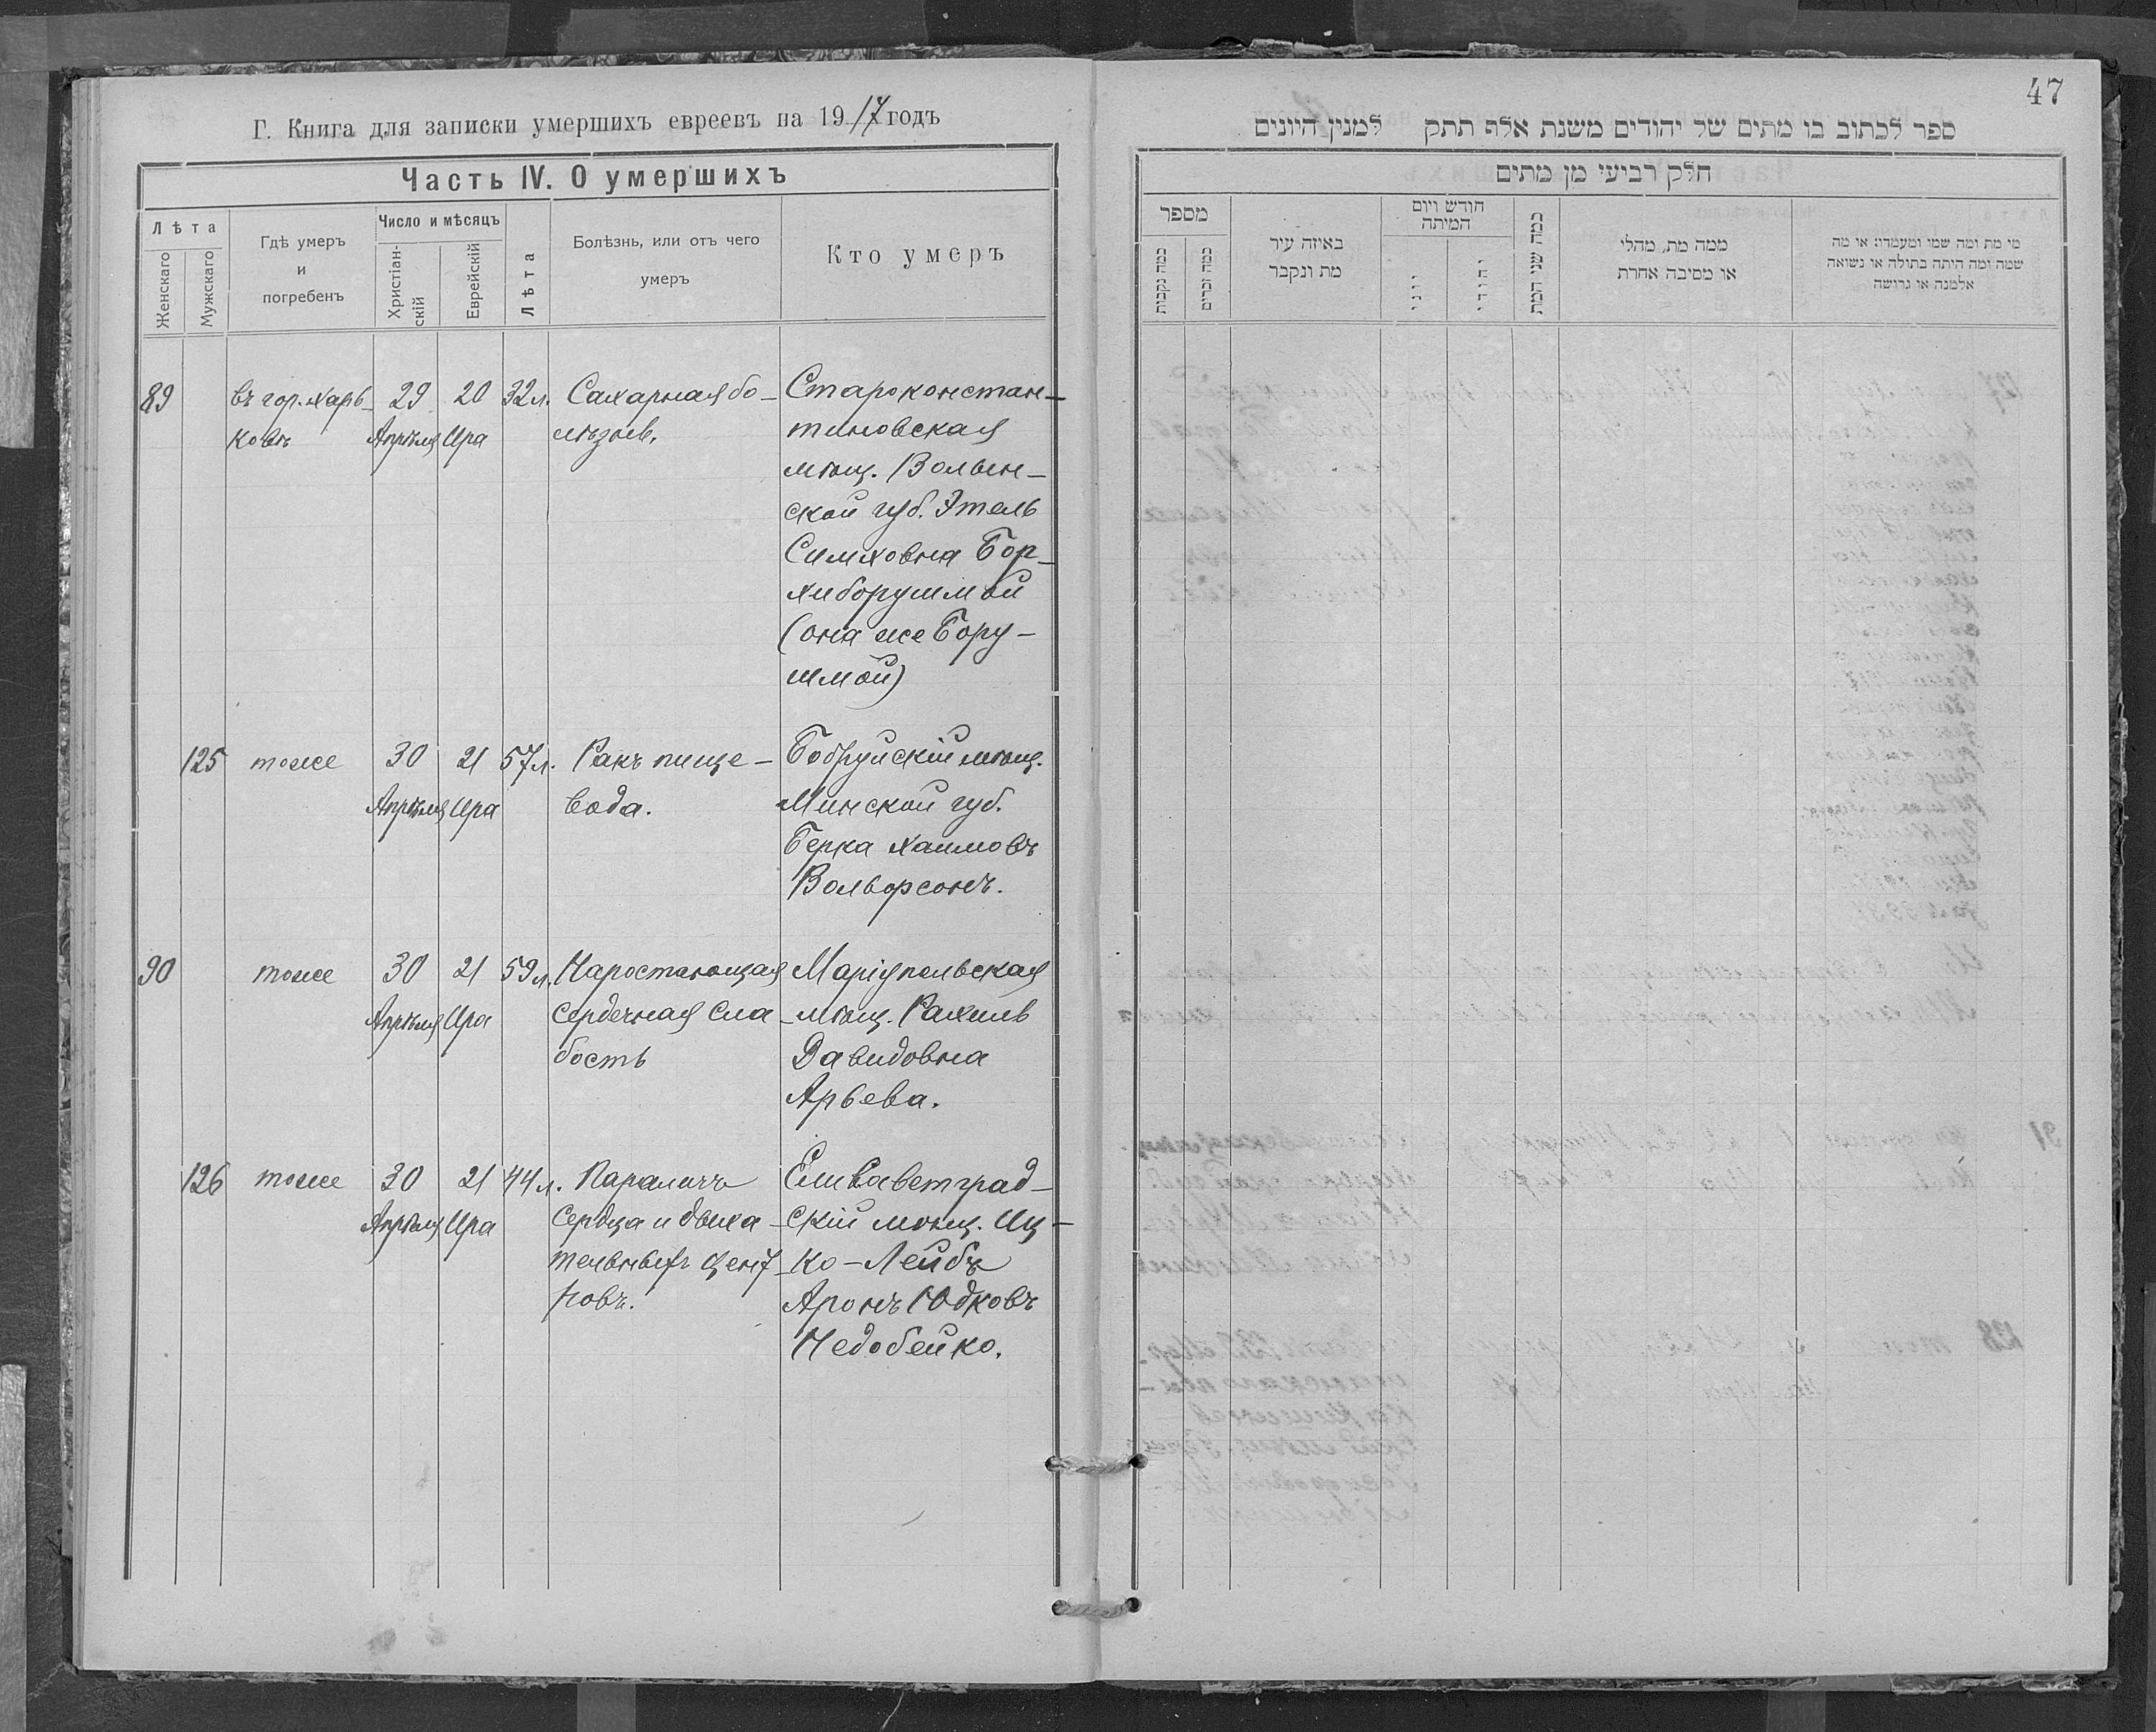 Г. Книга для записки умершихъ евреевъ на 1917 годъ
Часть IV. О умершихъ
Лѣта
Женскаго
Мужскаго
Гдѣ умеръ
и
погребенъ
Число и мѣсяцъ
Христіан-
скій
Еврейскій
Лѣта
Болѣзнь, или отъ чего
умеръ
Кто умеръ
89 въ гор. Харь- 29 20 32 л. Сахарная бо- Староконстан-
ковѣ Апрѣля Ира лѣзнь. тиновская
мѣщ. Волын-
ской губ. Этель
Симховна Бор-
хиборушмой
(она же Бору-
шмой)
125 тоже 30 21 57 л. Ракъ пище- Бобруйскій мѣщ.
Апрѣля Ира вода. Минской губ.
Берка Хаимовъ
Вольфсонъ.
90 тоже 30 21 59 л. Наростающая Маріупольская
Апрѣля Ира сердечная сла- мѣщ. Рахиль
бость Давидовна
Арьева.
126 тоже 30 21 44 л. Параличъ Елисаветград-
Апрѣля Ира сердца и дыха- скій мѣщ. Иц-
тельныхъ цент- ко-Лейбъ
ровъ. Аронъ Юдковъ
Недобейко.
47
ספר לכתוב בו מתים של יהודים משנת אלף תתק למנין היונים
חלק רביעי מן מתים
מספר
כמה נקבות
כמה זכרים
באיזה עיר
מת ונקבר
חודש ויום
המיתה
יוני
יהודי
כמה שני המת
ממה מת, מחלי
או מסיבה אחרת
מי מת ומה שמו ומעמדו: או מה
שמה ומה היתה בתולה או נשואה
אלמנה או גרושה